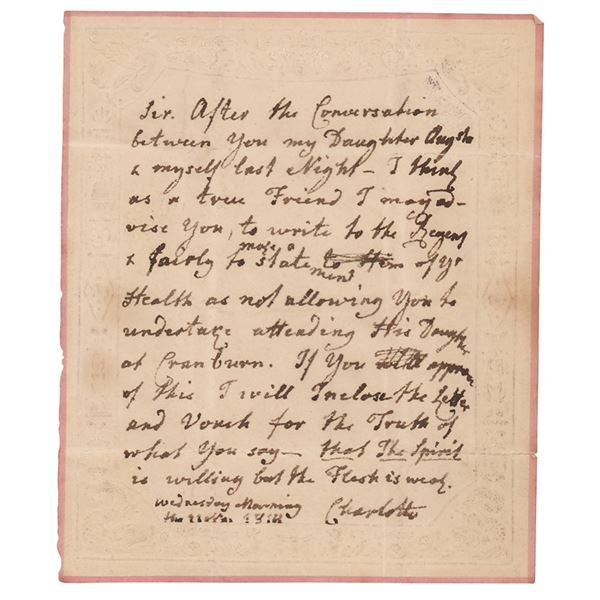 Sir. After the Conversation
between You my Daughter Augsta
& myself last Night – I think
as a true Friend I may ad-
vise You, to write to the Regent
& fairly to make a state ment of Yr
Health as not allowing You to
undertake attending His Daughter
at Cranburn. If You approve
of this I will Inclose the Letter
and Vouch for the Truth of
what You say – that The Spirit
is willing but the Flesh is weak.
Wednesday Morning
the Charlotte